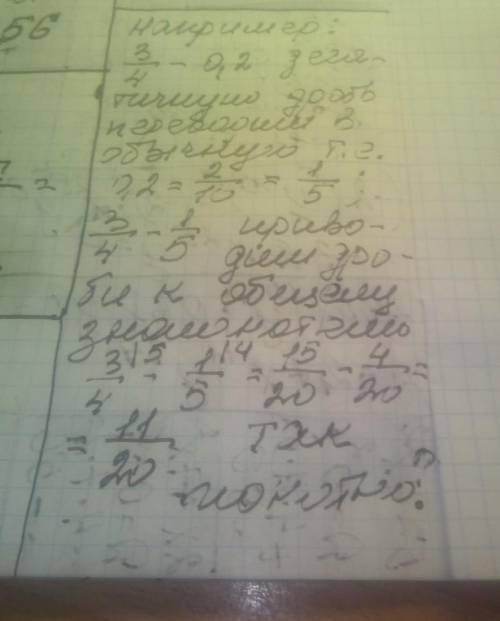 56
например:
3/4 - 0,2 деся-
тичную дробь
переводим в
обычную т.е.
0,2 = 2/10 = 1/5;
3/4 - 1/5 приво-
дим дро-
би к общему
знаменателю
3/4 |5 - 1/5 |4 = 15/20 - 4/20 =
= 11/20 так
понятно?